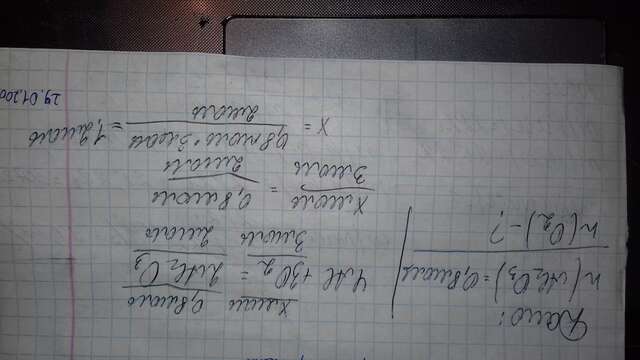 Дано:
n(Al₂O₃)=0,8моль
n(O₂)-?
xмоль 0,8моль
4Al + 3O₂ = 2Al₂O₃
3моль 2моль
xмоль / 3моль = 0,8моль / 2моль
X = 0,8моль · 3моль / 2моль = 1,2моль
29.01.200